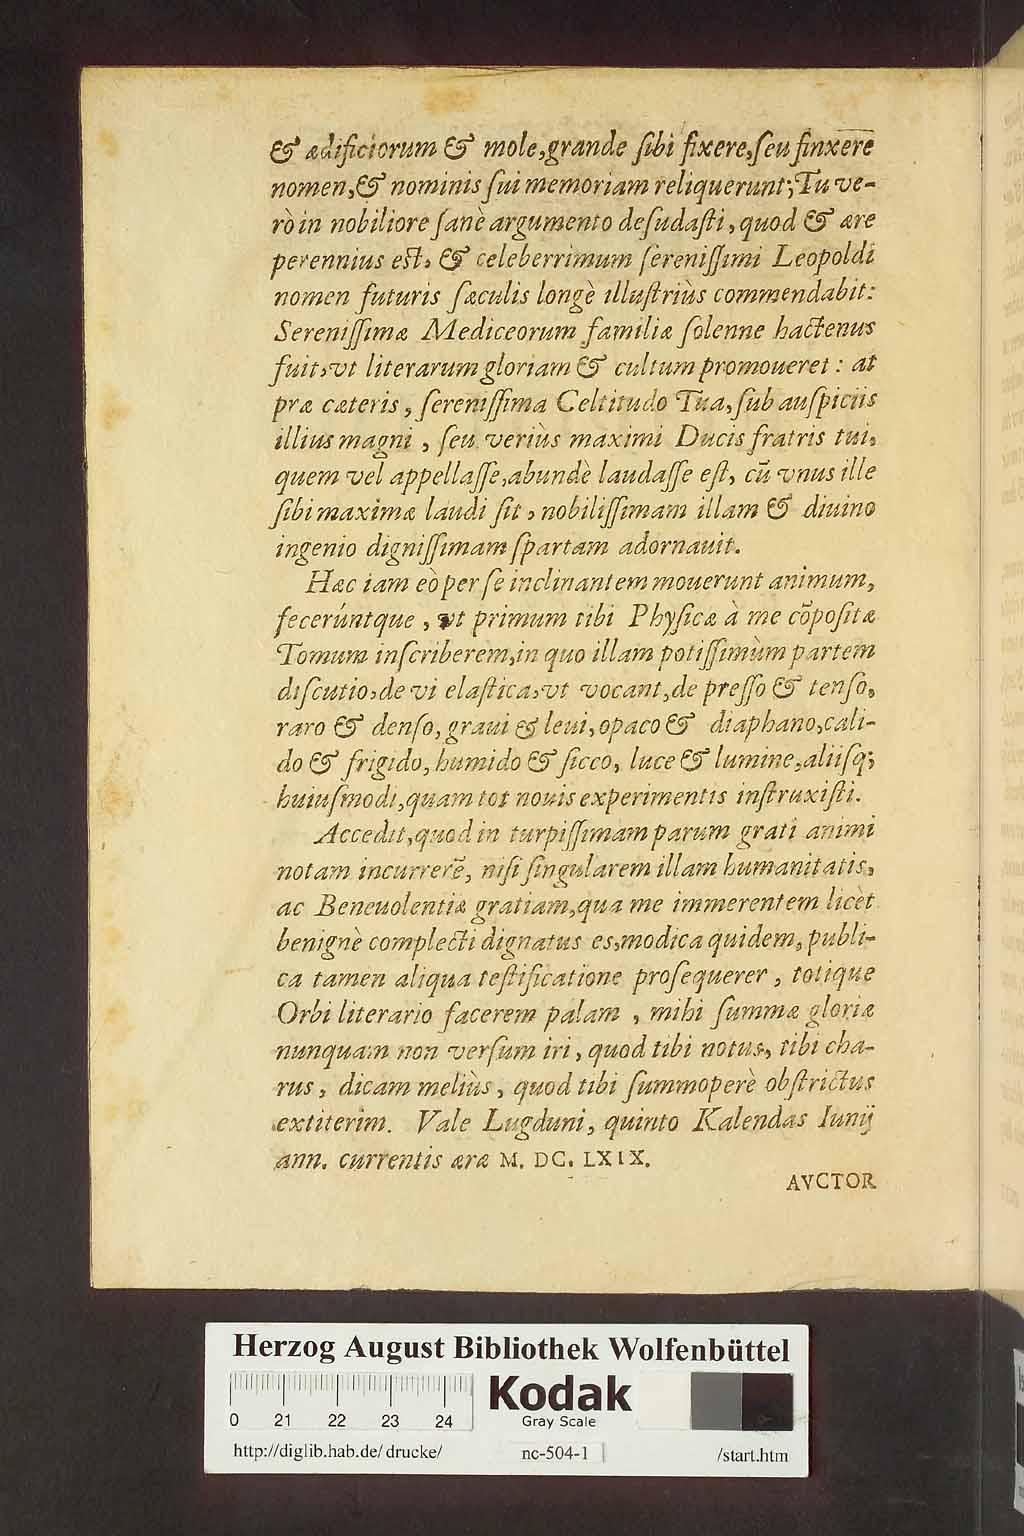 & ædificiorum & mole, grande ſibi fixere, ſeu finxere
nomen, & nominis ſui memoriam reliquerunt; Tu ve-
rò in nobiliore ſanè argumento deſudaſti, quod & ære
perennius eſt, & celeberrimum ſereniſſimi Leopoldi
nomen futuris ſæculis longè illuſtriùs commendabit:
Sereniſſimæ Mediceorum familiæ ſolenne hactenus
fuit, vt literarum gloriam & cultum promoueret : at
præ cæteris, ſereniſſima Celtitudo Tua, ſub auſpiciis
illius magni, ſeu veriùs maximi Ducis fratris tui,
quem vel appellaſſe, abundè laudaſſe eſt, cũ vnus ille
ſibi maximæ laudi ſit, nobiliſſimam illam & diuino
ingenio digniſſimam ſpartam adornauit.
Hæc iam eò per ſe inclinantem mouerunt animum,
fecerúntque, vt primum tibi Phyſicæ à me cõpoſitæ
Tomum inſcriberem, in quo illam potiſſimùm partem
diſcutio, de vi elaſtica, vt vocant, de preſſo & tenſo,
raro & denſo, graui & leui, opaco & diaphano, cali-
do & frigido, humido & ſicco, luce & lumine, aliiſq;
huiuſmodi, quam tot nouis experimentis inſtruxiſti.
Accedit, quod in turpiſſimam parum grati animi
notam incurrerẽ, niſi ſingularem illam humanitatis,
ac Beneuolentiæ gratiam, qua me immerentem licèt
benignè complecti dignatus es, modica quidem, publi-
ca tamen aliqua teſtificatione proſequerer, totique
Orbi literario facerem palam, mihi ſummæ gloriæ
nunquam non verſum iri, quod tibi notus, tibi cha-
rus, dicam meliùs, quod tibi ſummoperè obſtrictus
extiterim. Vale Lugduni, quinto Kalendas Iunij
ann. currentis æræ M. DC. LXIX.
AVCTOR
Herzog August Bibliothek Wolfenbüttel
0 21 22 23 24
Kodak
Gray Scale
http://diglib.hab.de/drucke/ nc-504-1 /start.htm